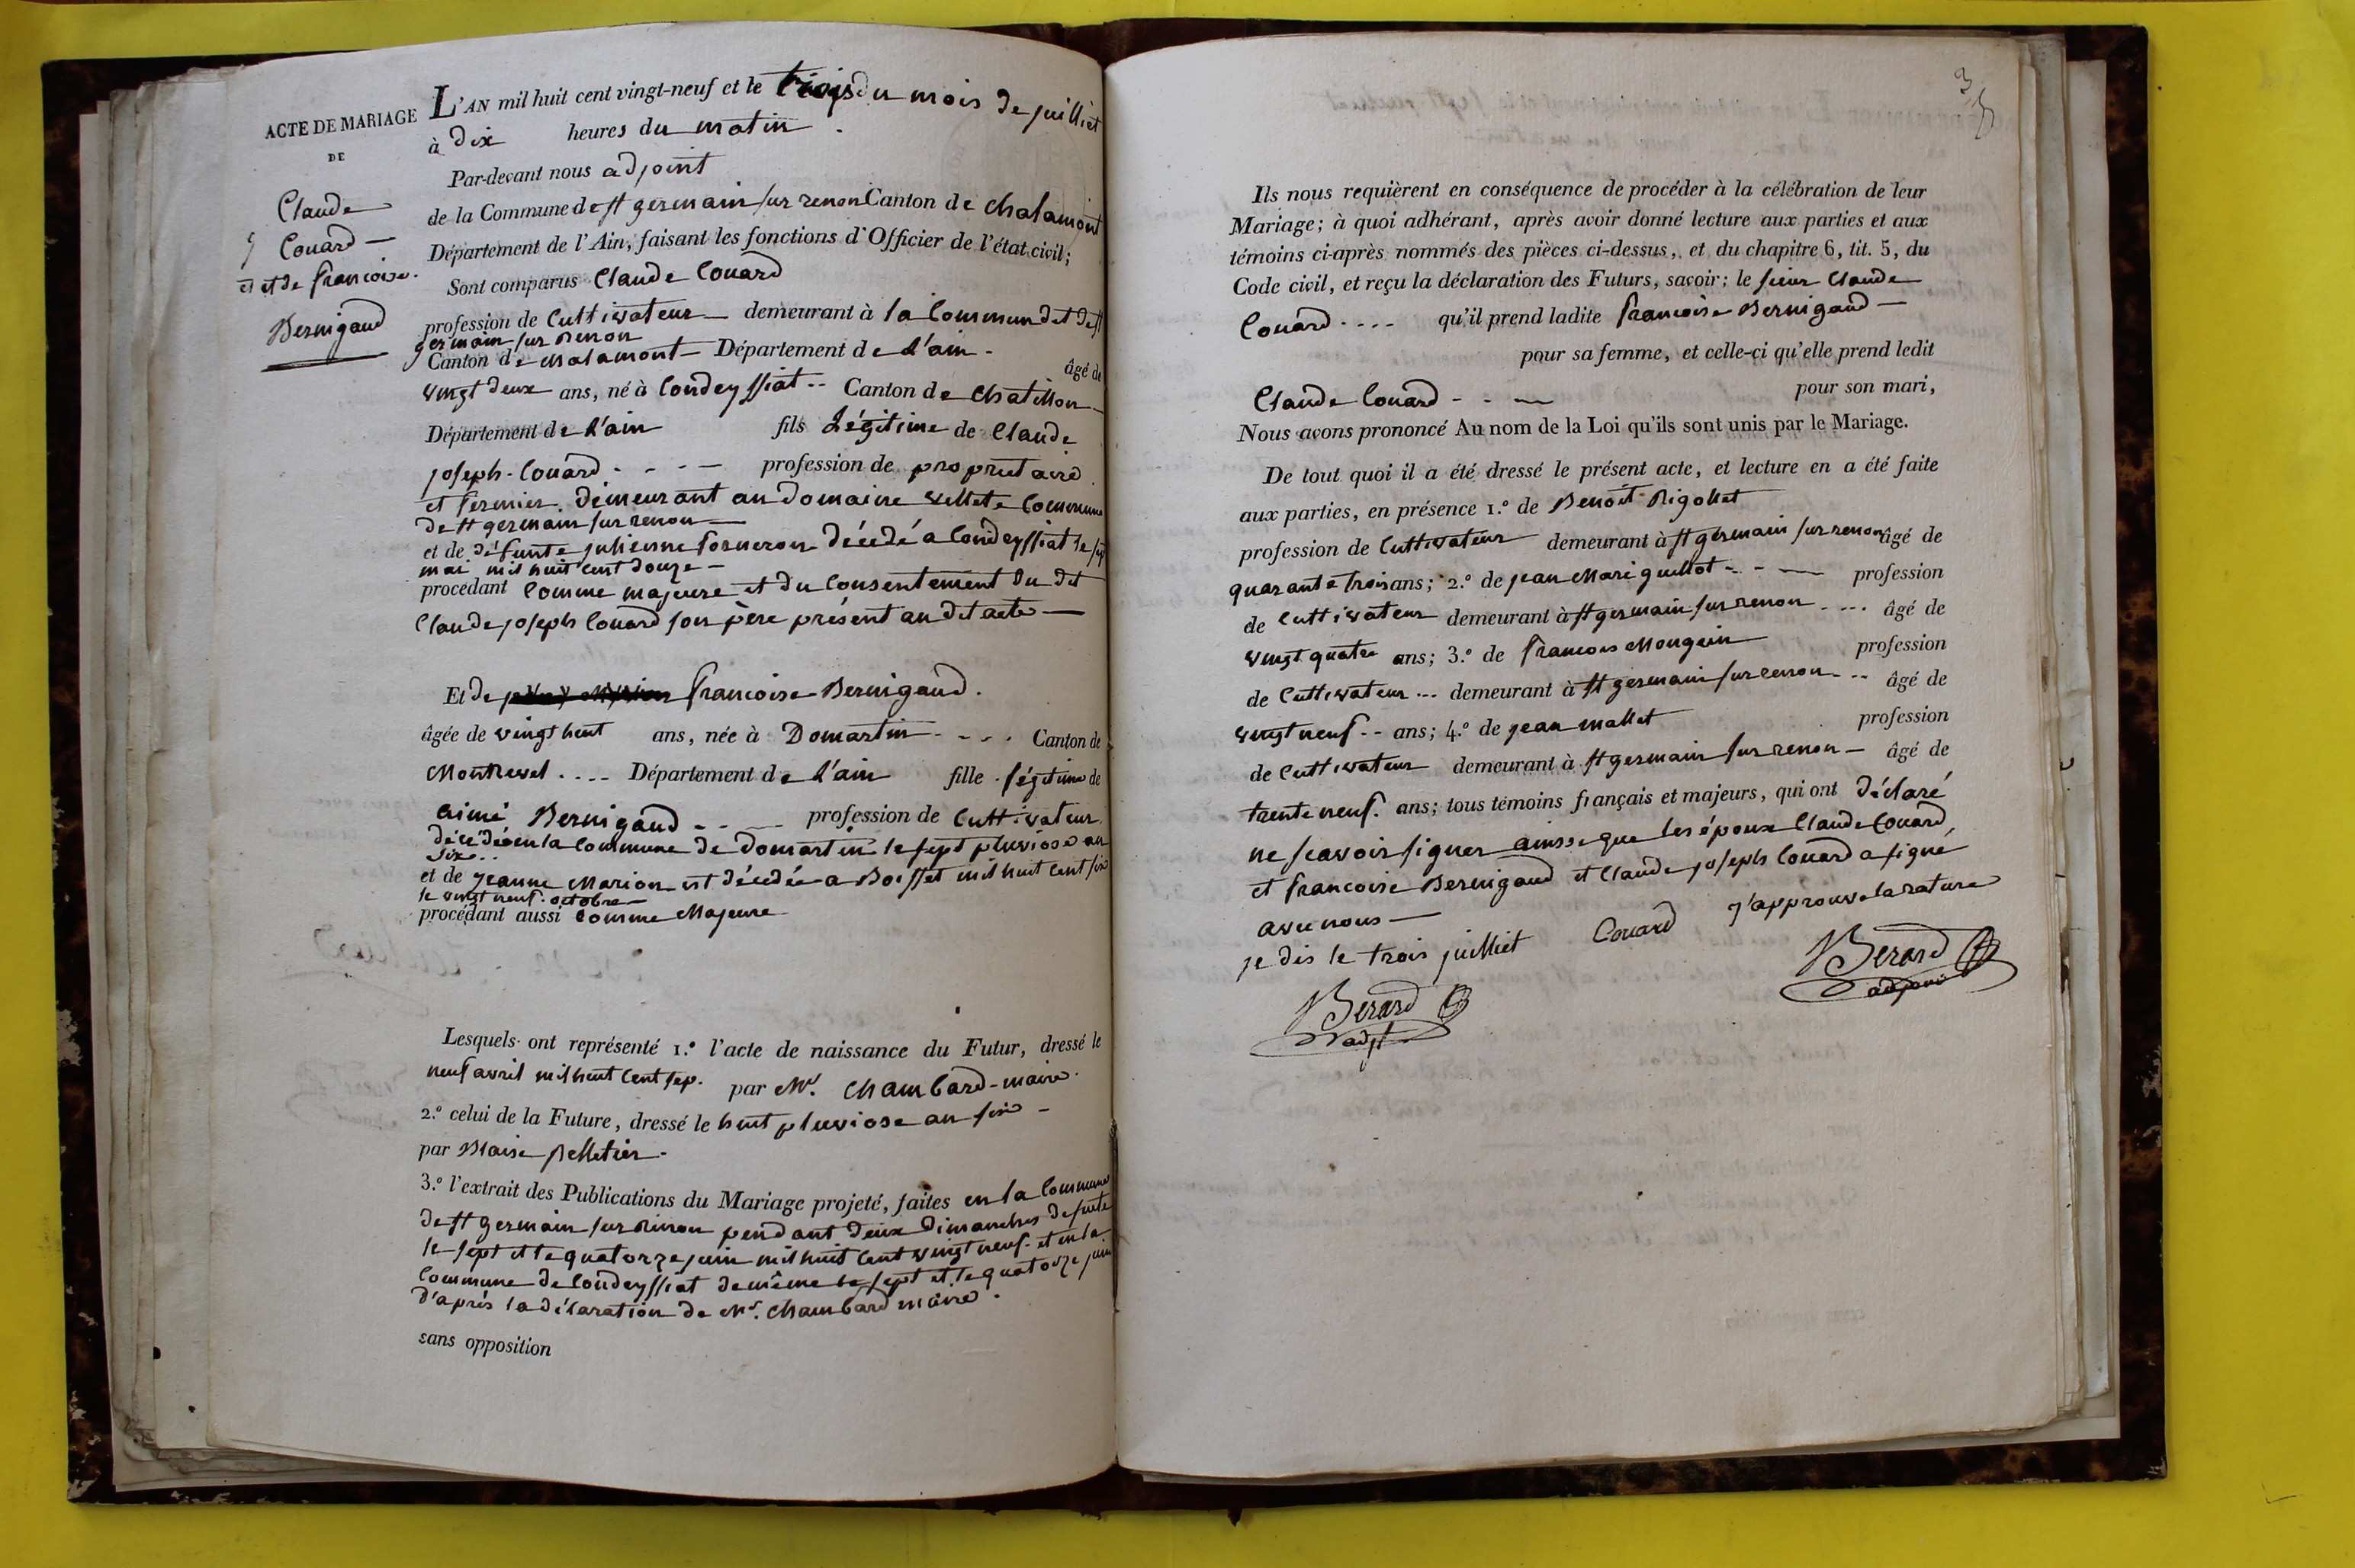 ACTE DE MARIAGE
DE
Claude
5 Couard —
et de francoise.
Bernigaud
L'AN mil huit cent vingt-neuf et le trois du mois de juilliet
à dix heures du matin .
Par-devant nous adjoint
de la Commune de st germain sur renon Canton de chalamont
Département de l'Ain, faisant les fonctions d'Officier de l'état civil;
Sont comparus Claude Couard
profession de Cultivateur — demeurant à la Commun de st
germain sur Renon
Canton de chalamont — Département de L'ain - âgé de
vingt deux ans, né à Condeyssiat -- Canton de Chatillon —
Département de L'ain fils Légitime de Claude
joseph - Couard - - - — profession de proprietaire
et fermier. demeurant au domaine Commune
de st germain sur renon —
et de défunte julienne forneron décédé a Condeyssiat le sept
mai mil huit cent douze —
procédant Comme majeure et du Consentement du dit
Claude joseph Couard son père présent au dit acte —
Et de francoise Bernigaud.
âgée de vingt huit ans, née à Domartin - - - . Canton de
Montrevel .... Département de L'ain fille . légitime de
aimé Bernigaud - - — profession de Cultivateur.
décédé en la Commune de Domartin le sept pluviose an
six..
et de jeanne Marion est décédée a Boisset mil huit Cent six
le vingt neuf. octobre —
procédant aussi Comme Majeure
Lesquels ont représenté 1.º l'acte de naissance du Futur, dressé le
neuf avril mil huit Cent sep. par Mr. Chambard - maire.
2.º celui de la Future, dressé le huit pluviose an six -
par Blaise pelletier.
3.º l'extrait des Publications du Mariage projeté, faites en la Commune
de st germain sur Renon pendant deux dimanches de suite
le sept et le quatorze juin mil huit Cent vingt neuf. et en la
Commune de Condeyssiat de même le sept et le quatorze juin
d'après la déclaration de Mr. Chambard maire.
sans opposition
3
Ils nous requièrent en conséquence de procéder à la célébration de leur
Mariage; à quoi adhérant, après avoir donné lecture aux parties et aux
témoins ci-après nommés des pièces ci-dessus, et du chapitre 6, tit. 5, du
Code civil, et reçu la déclaration des Futurs, savoir; le sieur Claude
Couard .... qu'il prend ladite francoise Bernigaud —
pour sa femme, et celle-ci qu'elle prend ledit
Claude Couard - - — pour son mari,
Nous avons prononcé Au nom de la Loi qu'ils sont unis par le Mariage.
De tout quoi il a été dressé le présent acte, et lecture en a été faite
aux parties, en présence 1.º de Benoît Rigollet
profession de Cultivateur demeurant à st germain sur renon âgé de
quarante trois ans; 2.º de jean Marie guillot - - — profession
de Cultivateur demeurant à st germain sur renon .... âgé de
vingt quatre ans; 3.º de francois Mongein profession
de Cultivateur ... demeurant à st germain sur renon ... âgé de
vingt neuf -- ans; 4.º de jean mallet profession
de Cultivateur demeurant à st germain sur renon — âgé de
trente neuf. ans; tous témoins français et majeurs, qui ont déclaré
ne scavoir signer ainsi que les époux Claude Couard,
et francoise Bernigaud et Claude joseph Couard a signé
avec nous —
je dis le trois juilliet Couard j'approuve la rature
Berard
adjt
Berard
adjoint